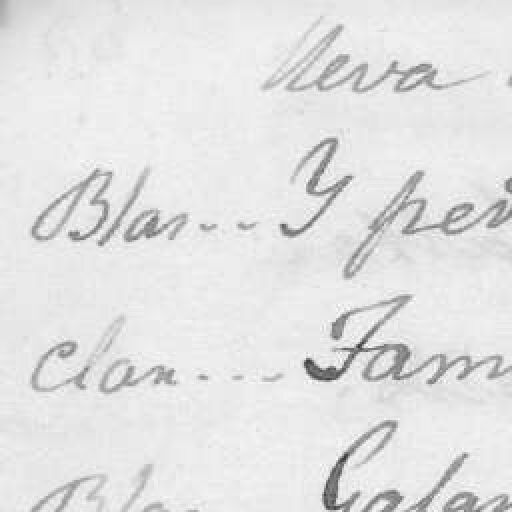 lleva
Blas... Y pei
Clan.... Fam
Blas Galan